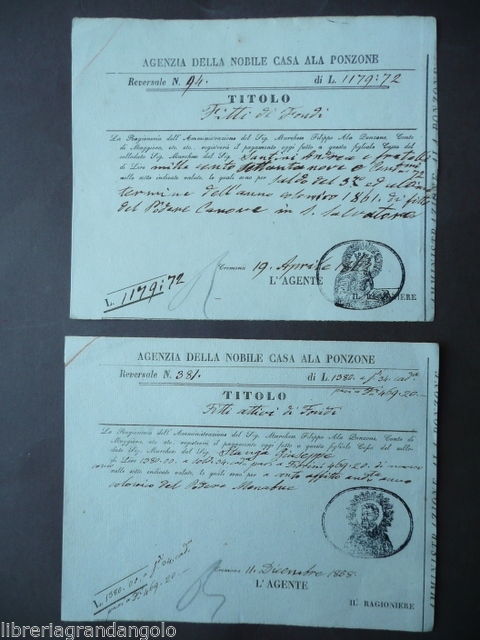 AGENZIA DELLA NOBILE CASA ALA PONZONE
Reversale N. 94. di L. 1179:72
TITOLO
Fitti di Fondi
La Ragioneria dell'Amministrazione del Sig. Marchese Filippo Ala Ponzone, Conte
di Maggiona, etc. etc. registrerà il pagamento oggi fatto a questa figliale Cassa del
sullodato Sig. Marchese dal Sig. Santini Andrea e fratelli
di Lire mille cento settantanove e Cent. 72
nelle sotto indicate valute, le quali sono per saldo del 3.° ed ultimo
termine dell'anno colonico 1861. di fitto
del Podere Canova in S. Salvatore
Cremona 19. Aprile
L. 1179:72
L'AGENTE
IL RAGIONIERE
AMMINISTRAZIONE ALA PONZONE
AGENZIA DELLA NOBILE CASA ALA PONZONE
Reversale N. 381. di L. 1380.
469.20.
TITOLO
Fitti attivi di Fondi
La Ragioneria dell'Amministrazione del Sig. Marchese Filippo Ala Ponzone, Conte
di Maggiona, etc. etc. registrerà il pagamento oggi fatto a questa figliale Cassa del sullo-
dato Sig. Marchese dal Sig. Giuseppe
di Lire 1380.
nelle sotto indicate valute, le quali sono a conto affitto anno
colonico del Podere
Cremona 11. Dicembre 1858
L'AGENTE
L. 1380
469.20
IL RAGIONIERE
AMMINISTRAZIONE ALA PONZONE
libreriagrandangolo